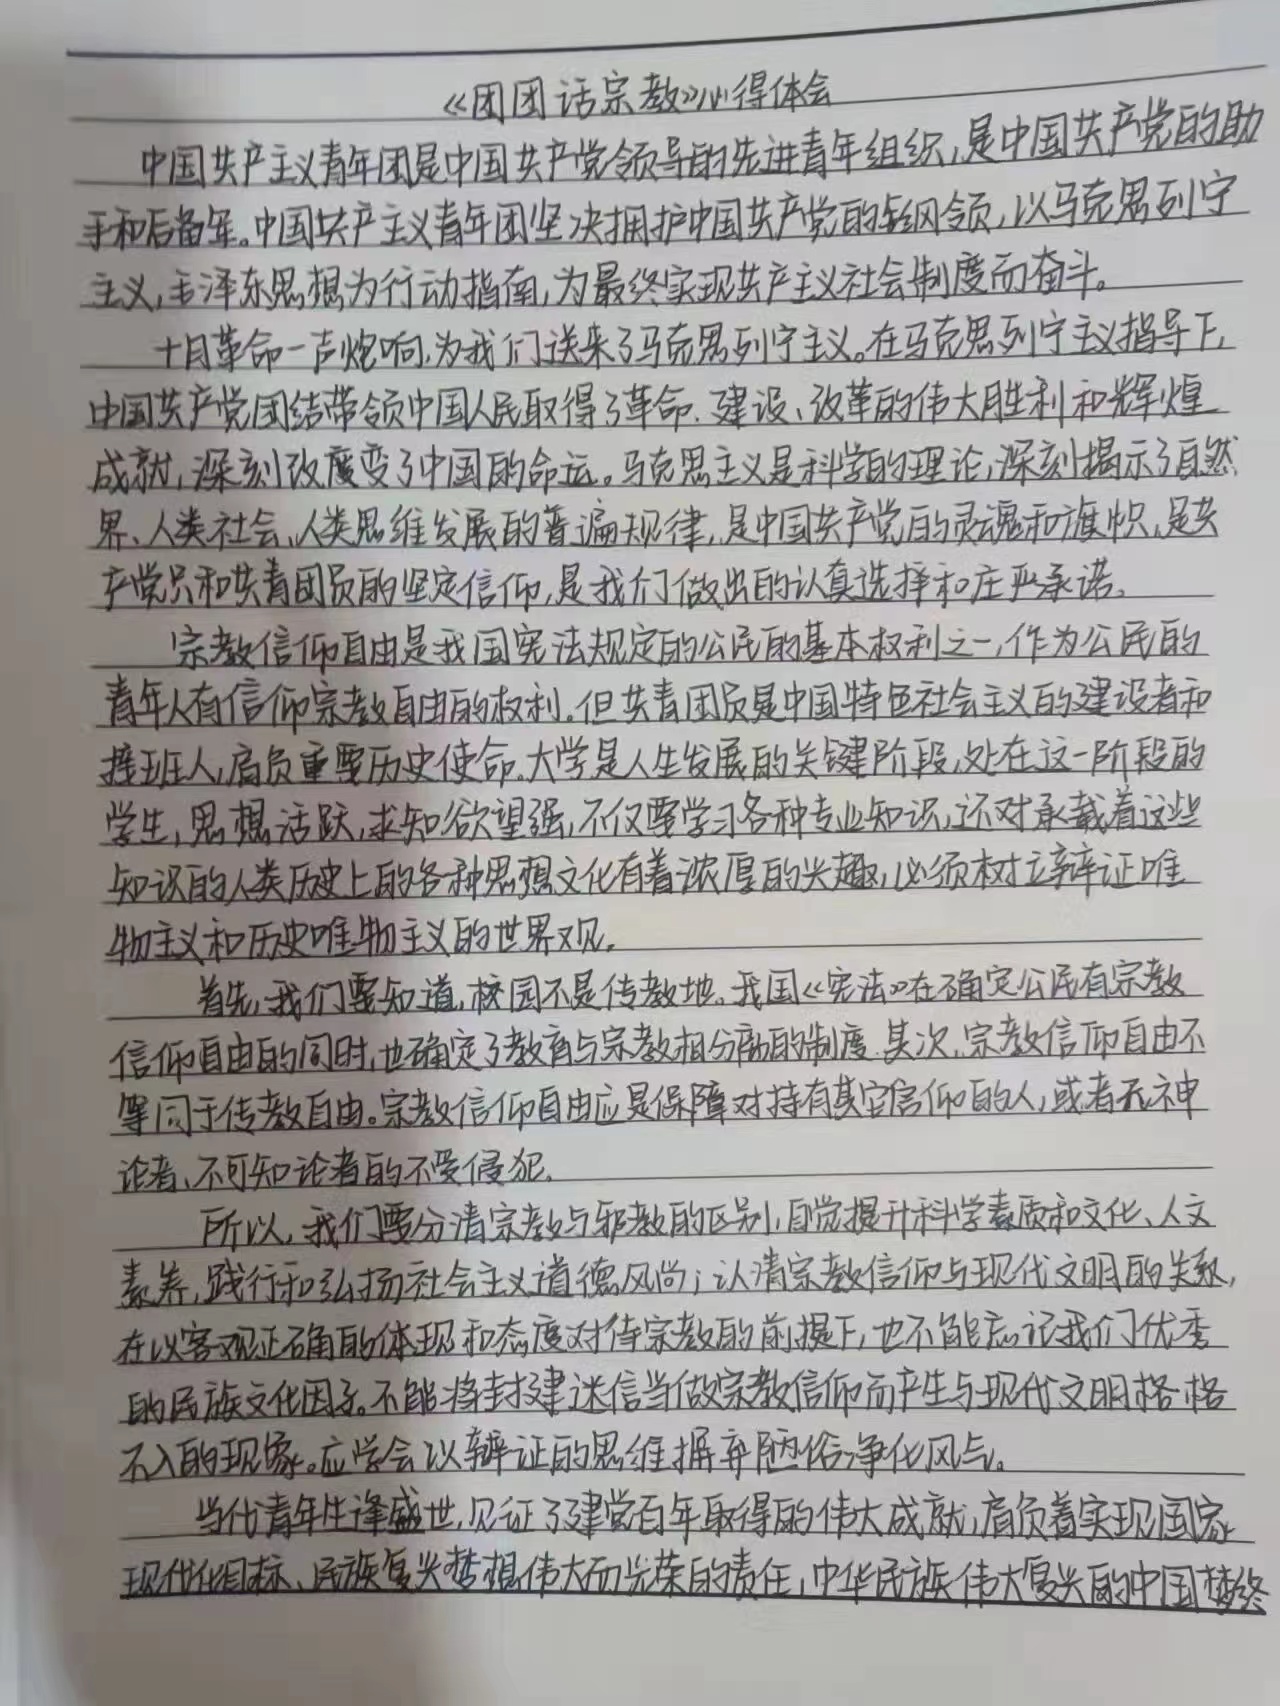 《团团话宗教》心得体会
中国共产主义青年团是中国共产党领导的先进青年组织,是中国共产党的助
手和后备军。中国共产主义青年团坚决拥护中国共产党的纲领,以马克思列宁
主义,毛泽东思想为行动指南,为最终实现共产主义社会制度而奋斗。
十月革命一声炮响,为我们送来了马克思列宁主义。在马克思列宁主义指导下,
中国共产党团结带领中国人民取得了革命、建设、改革的伟大胜利和辉煌
成就,深刻改变了中国的命运。马克思主义是科学的理论,深刻揭示了自然
界、人类社会、人类思维发展的普遍规律,是中国共产党的灵魂和旗帜,是共
产党员和共青团员的坚定信仰,是我们做出的认真选择和庄严承诺。
宗教信仰自由是我国宪法规定的公民的基本权利之一,作为公民的
青年人有信仰宗教自由的权利。但共青团员是中国特色社会主义的建设者和
接班人,肩负重要历史使命。大学是人生发展的关键阶段,处在这一阶段的
学生,思想活跃,求知欲望强,不仅要学习各种专业知识,还对承载着这些
知识的人类历史上的各种思想文化有着浓厚的兴趣,必须树立辩证唯
物主义和历史唯物主义的世界观。
首先,我们要知道,校园不是传教地。我国《宪法》在确定公民有宗教
信仰自由的同时,也确定了教育与宗教相分离的制度.其次,宗教信仰自由不
等同于传教自由。宗教信仰自由应是保障对持有其它信仰的人,或者无神
论者、不可知论者的不受侵犯.
所以,我们要分清宗教与邪教的区别,自觉提升科学素质和文化、人文
素养,践行和弘扬社会主义道德风尚;认清宗教信仰与现代文明的关系,
在以客观正确的体现和态度对待宗教的前提下,也不能忘记我们优秀
的民族文化因子。不能将封建迷信当做宗教信仰而产生与现代文明格格
不入的现象。应学会以辩证的思维摒弃陋俗净化风气。
当代青年生逢盛世,见证了建党百年取得的伟大成就,肩负着实现国家
现代化目标、民族复兴梦想伟大而光荣的责任,中华民族伟大复兴的中国梦终